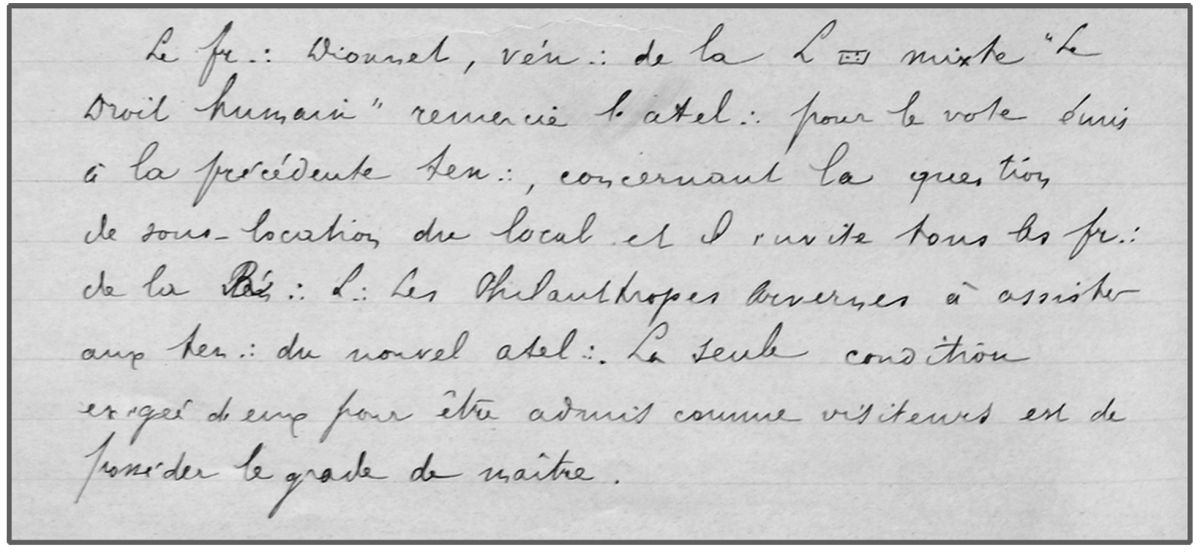 Le fr∴ Dionnet, vén∴ de la L □ mixte "Le
Droit humain" remercie l'atel∴ pour le vote émis
à la précédente ten∴, concernant la question
de sous-location du local et il invite tous les fr∴
de la L∴ Les Philanthropes Arvernes à assister
aux ten∴ du nouvel atel∴. La seule condition
exigée d'eux pour être admis comme visiteurs est de
posséder le grade de maître.